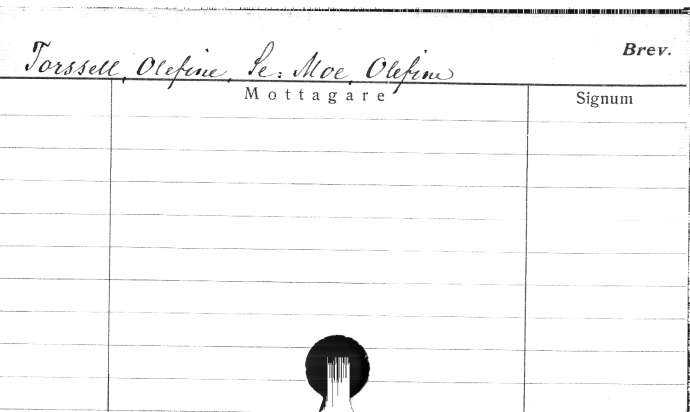 Brev.
Torssell, Olefine, Se: Moe, Olefine
Mottagare Signum